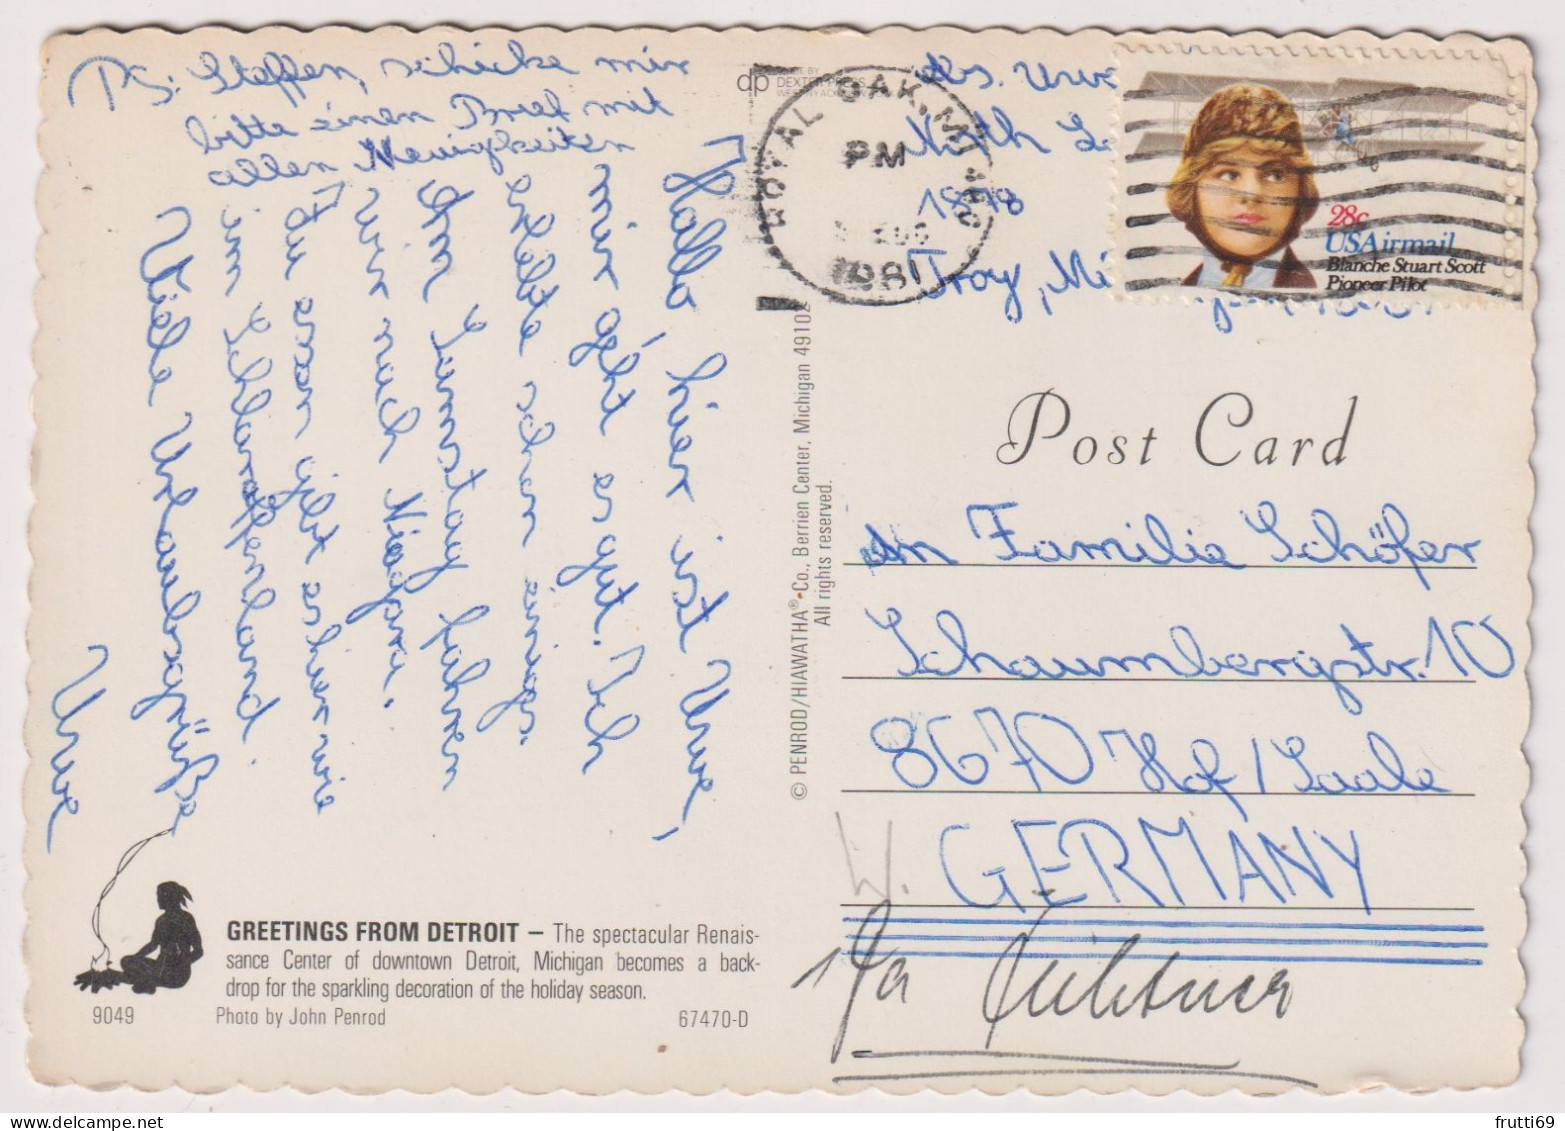 PS: Steffen, schicke mir
bitte einen Brief mit
allen Neuigkeiten
Hallo, hier ist Uwe,
mir geht es gut. Ich
erlebte schon einiges.
Am Samstag fahren
wir nach Niagara.
Du was gibt es hier wie
im Schlaraffenland.
Viele Urlaubsgrüße
Uwe
GREETINGS FROM DETROIT – The spectacular Renais-
sance Center of downtown Detroit, Michigan becomes a back-
drop for the sparkling decoration of the holiday season.
9049 Photo by John Penrod 67470-D
© PENROD/HIAWATHA® Co., Berrien Center, Michigan 49102
All rights reserved.
dp
DEXTER PRESS
Abs. Uwe
North
1878
Troy, Mi
ROYAL OAK, MI 480
PM
AUG
1981
28c
USAirmail
Blanche Stuart Scott
Pioneer Pilot
Post Card
an Familie Schöfer
Schaumbergstr. 10
8670 Hof / Saale
W. GERMANY
frutti69